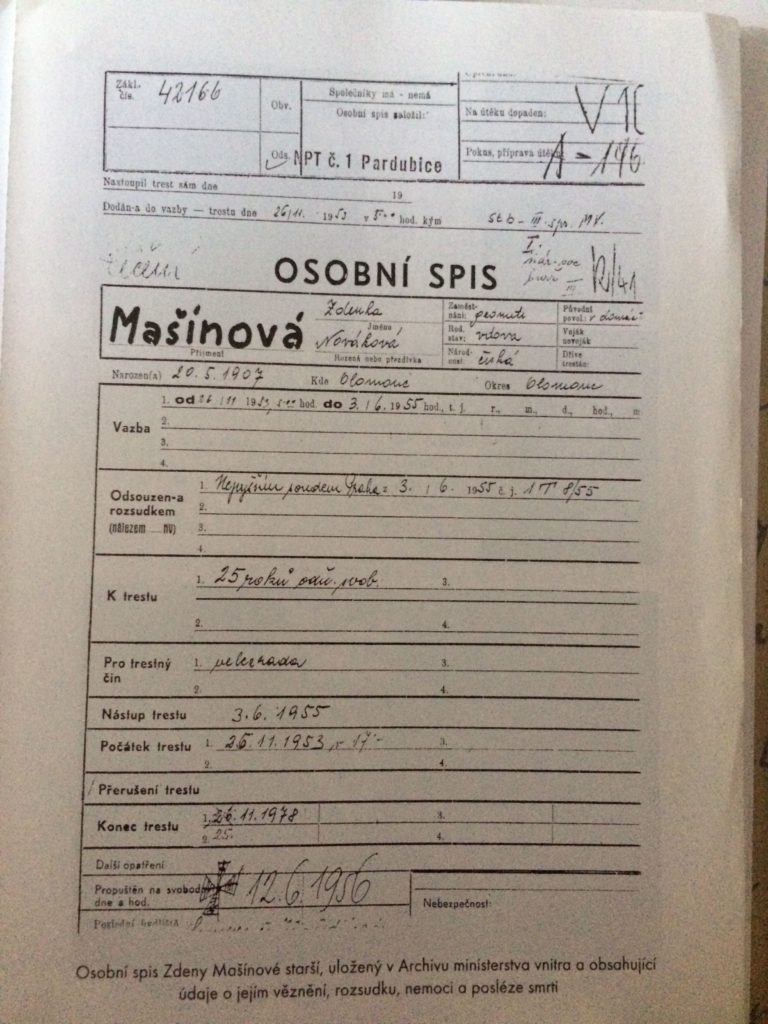 Zákl. čís. 42166
Obv.
Společníky má - nemá
Osobní spis založil:
Ods. NPT č. 1 Pardubice
Na útěku dopaden:
Pokus, příprava útěku
A - 176
Nastoupil trest sám dne 19
Dodán-a do vazby — trestu dne 26/11. 1953 v 5 hod. kým StB - III. spr. MV.
OSOBNÍ SPIS
Mašínová
Příjmení
Zdenka
Jméno
Nováková
Rozená nebo přezdívka
Zaměstnání:
Rod. stav: vdova
Národnost: česká
Původní povol.: v domác.
Voják nevoják
Dříve trestán:
Narozen(a) 20. 5. 1907 Kde Olomouc Okres Olomouc
Vazba
1. od 26/11 1953, hod. do 3. /6. 1955 hod., t. j. r., m., d., hod., m
2.
3.
4.
Odsouzen-a rozsudkem (nálezem NV)
1. Nejvyšším soudem Praha: 3. /6. 1955 č. j. 1 T 8/55
2.
3.
4.
K trestu
1. 25 roků odn. svob. 3.
2. 4.
Pro trestný čin
1. velezrada 3.
2. 4.
Nástup trestu 3. 6. 1955
Počátek trestu 1. 26. 11. 1953 v 17 3.
2. 4.
Přerušení trestu
Konec trestu 1. 26. 11. 1978 3.
2. 25. 4.
Další opatření
Propuštěn na svobodu dne a hod. 12. 6. 1956
Nebezpečnost:
Poslední bydliště
Osobní spis Zdeny Mašínové starší, uložený v Archivu ministerstva vnitra a obsahující
údaje o jejím věznění, rozsudku, nemoci a posléze smrti